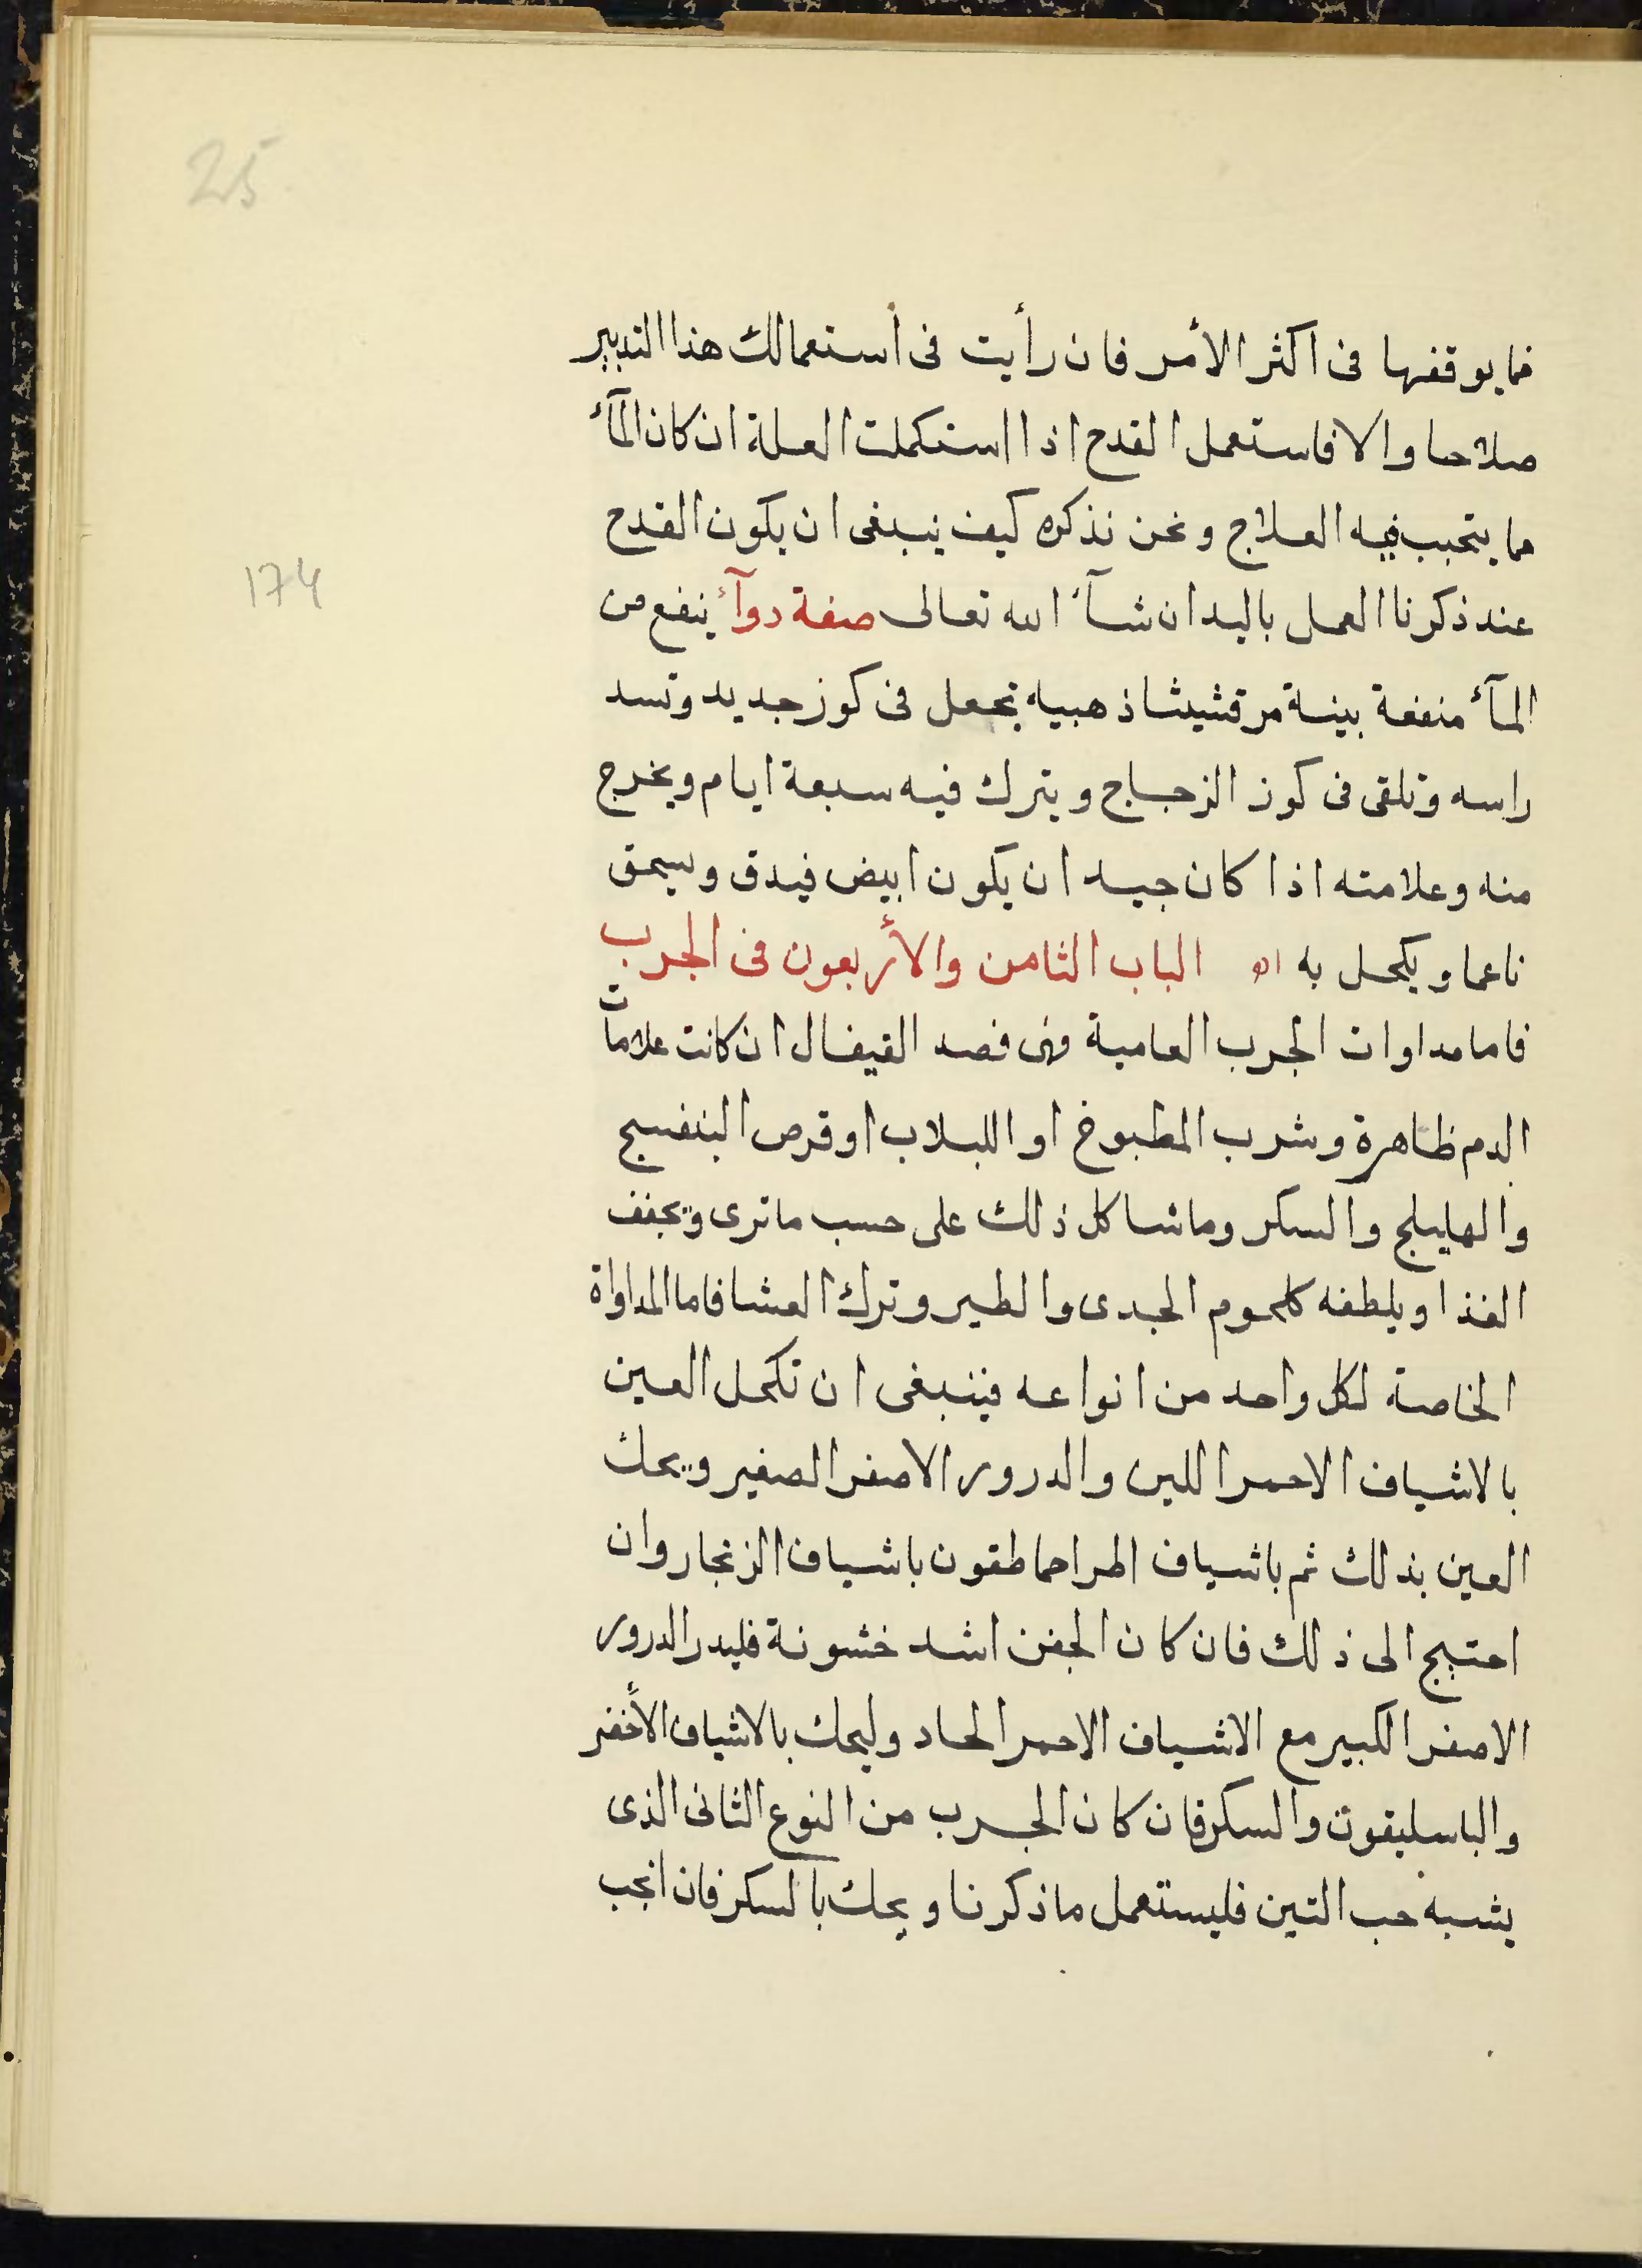 25
فما يوقفها فى اكثر الأمر فان رأيت فى أستعمالك هذا التدبير
صلاحا والا فاستعمل القدح اذا استكملت العلة ان كان المآء
مما يتحبب فيه العلاج ونحن نذكره كيف ينبغى ان يكون القدح
174
عند ذكرنا العمل باليد ان شآء الله تعالى صفة دوآء ينفع من
المآء منفعة بينة مرقشيثا ذهبيه تجعل فى كوز جديد وتسد
راسه وتلقى فى كوز الزجاج ويترك فيه سبعة ايام ويخرج
منه وعلامته اذا كان جيد ان يكون ابيض فيدق ويسحق
ناعما ويكحل به اه الباب الثامن والأربعون فى الجرب
فاما مداوات الجرب العامية فهى فصد القيفال ان كانت علامات
الدم ظاهرة وشرب المطبوخ او اللبلاب او قرص البنفسج
والهليلج والسكر وما شاكل ذلك على حسب ما ترى ويجفف
الغذا ويلطفه كلحوم الجدى والطير وترك العشا فاما المداواة
الخاصة لكل واحد من انواعه فينبغى ان تكحل العين
بالاشياف الاحمر اللين والدرور الاصفر الصغير ويحك
العين بذلك ثم باشياف اطراحماطقون باشياف الزنجار وان
احتيج الى ذلك فان كان الجفن اشد خشونة فليدر الدرور
الاصفر الكبير مع الاشياف الاحمر الحاد وليحك بالاشياف الأخضر
والباسليقون والسكر فان كان الجرب من النوع الثانى الذى
يشبه حب التين فليستعمل ما ذكرنا ويحك بالسكر فان انجب